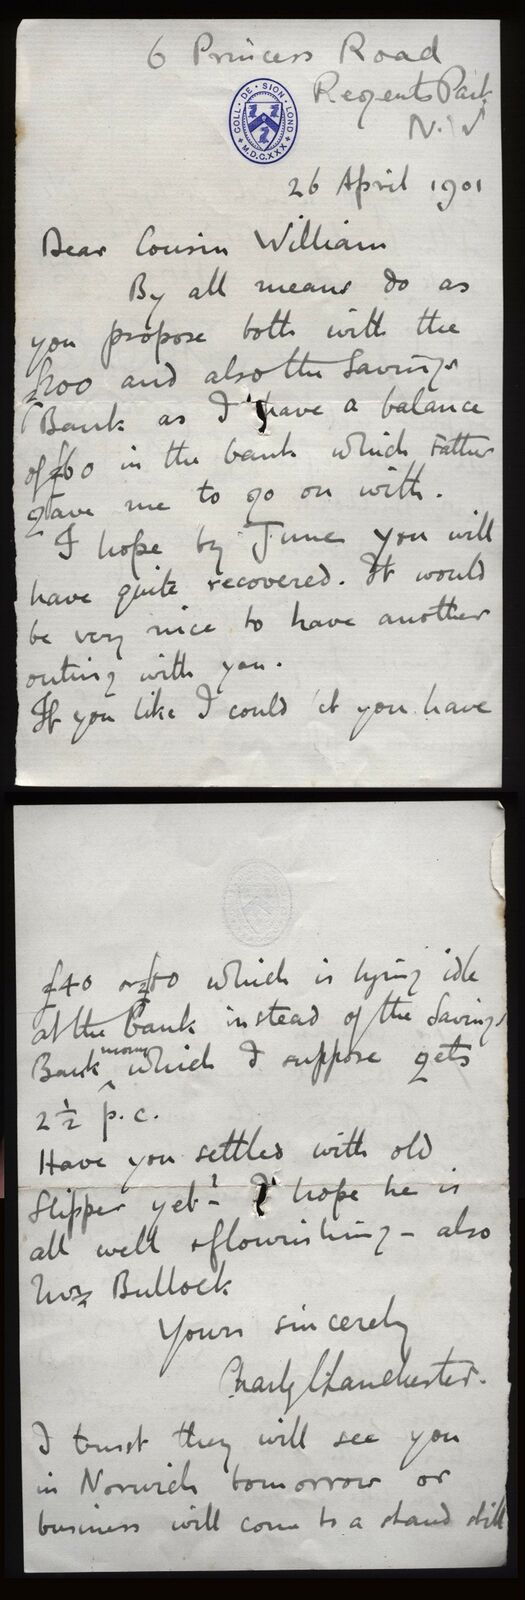 6 Princess Road
Regents Park
N.W
COLL · DE · SION · LOND · M.D.C.XXX
26 April 1901
Dear Cousin William
By all means do as
you propose both with the
£200 and also the Savings
Bank as I have a balance
of £60 in the bank which Father
gave me to go on with.
I hope by June you will
have quite recovered. It would
be very nice to have another
outing with you.
If you like I could let you have
£40 or £50 which is lying idle
at the bank instead of the Savings
Bank money which I suppose gets
2½ p.c.
Have you settled with old
Slipper yet? – I hope he is
all well & flourishing – also
Mrs Bullock
Yours sincerely
Lanchester.
I trust they will see you
in Norwich tomorrow or
business will come to a stand still